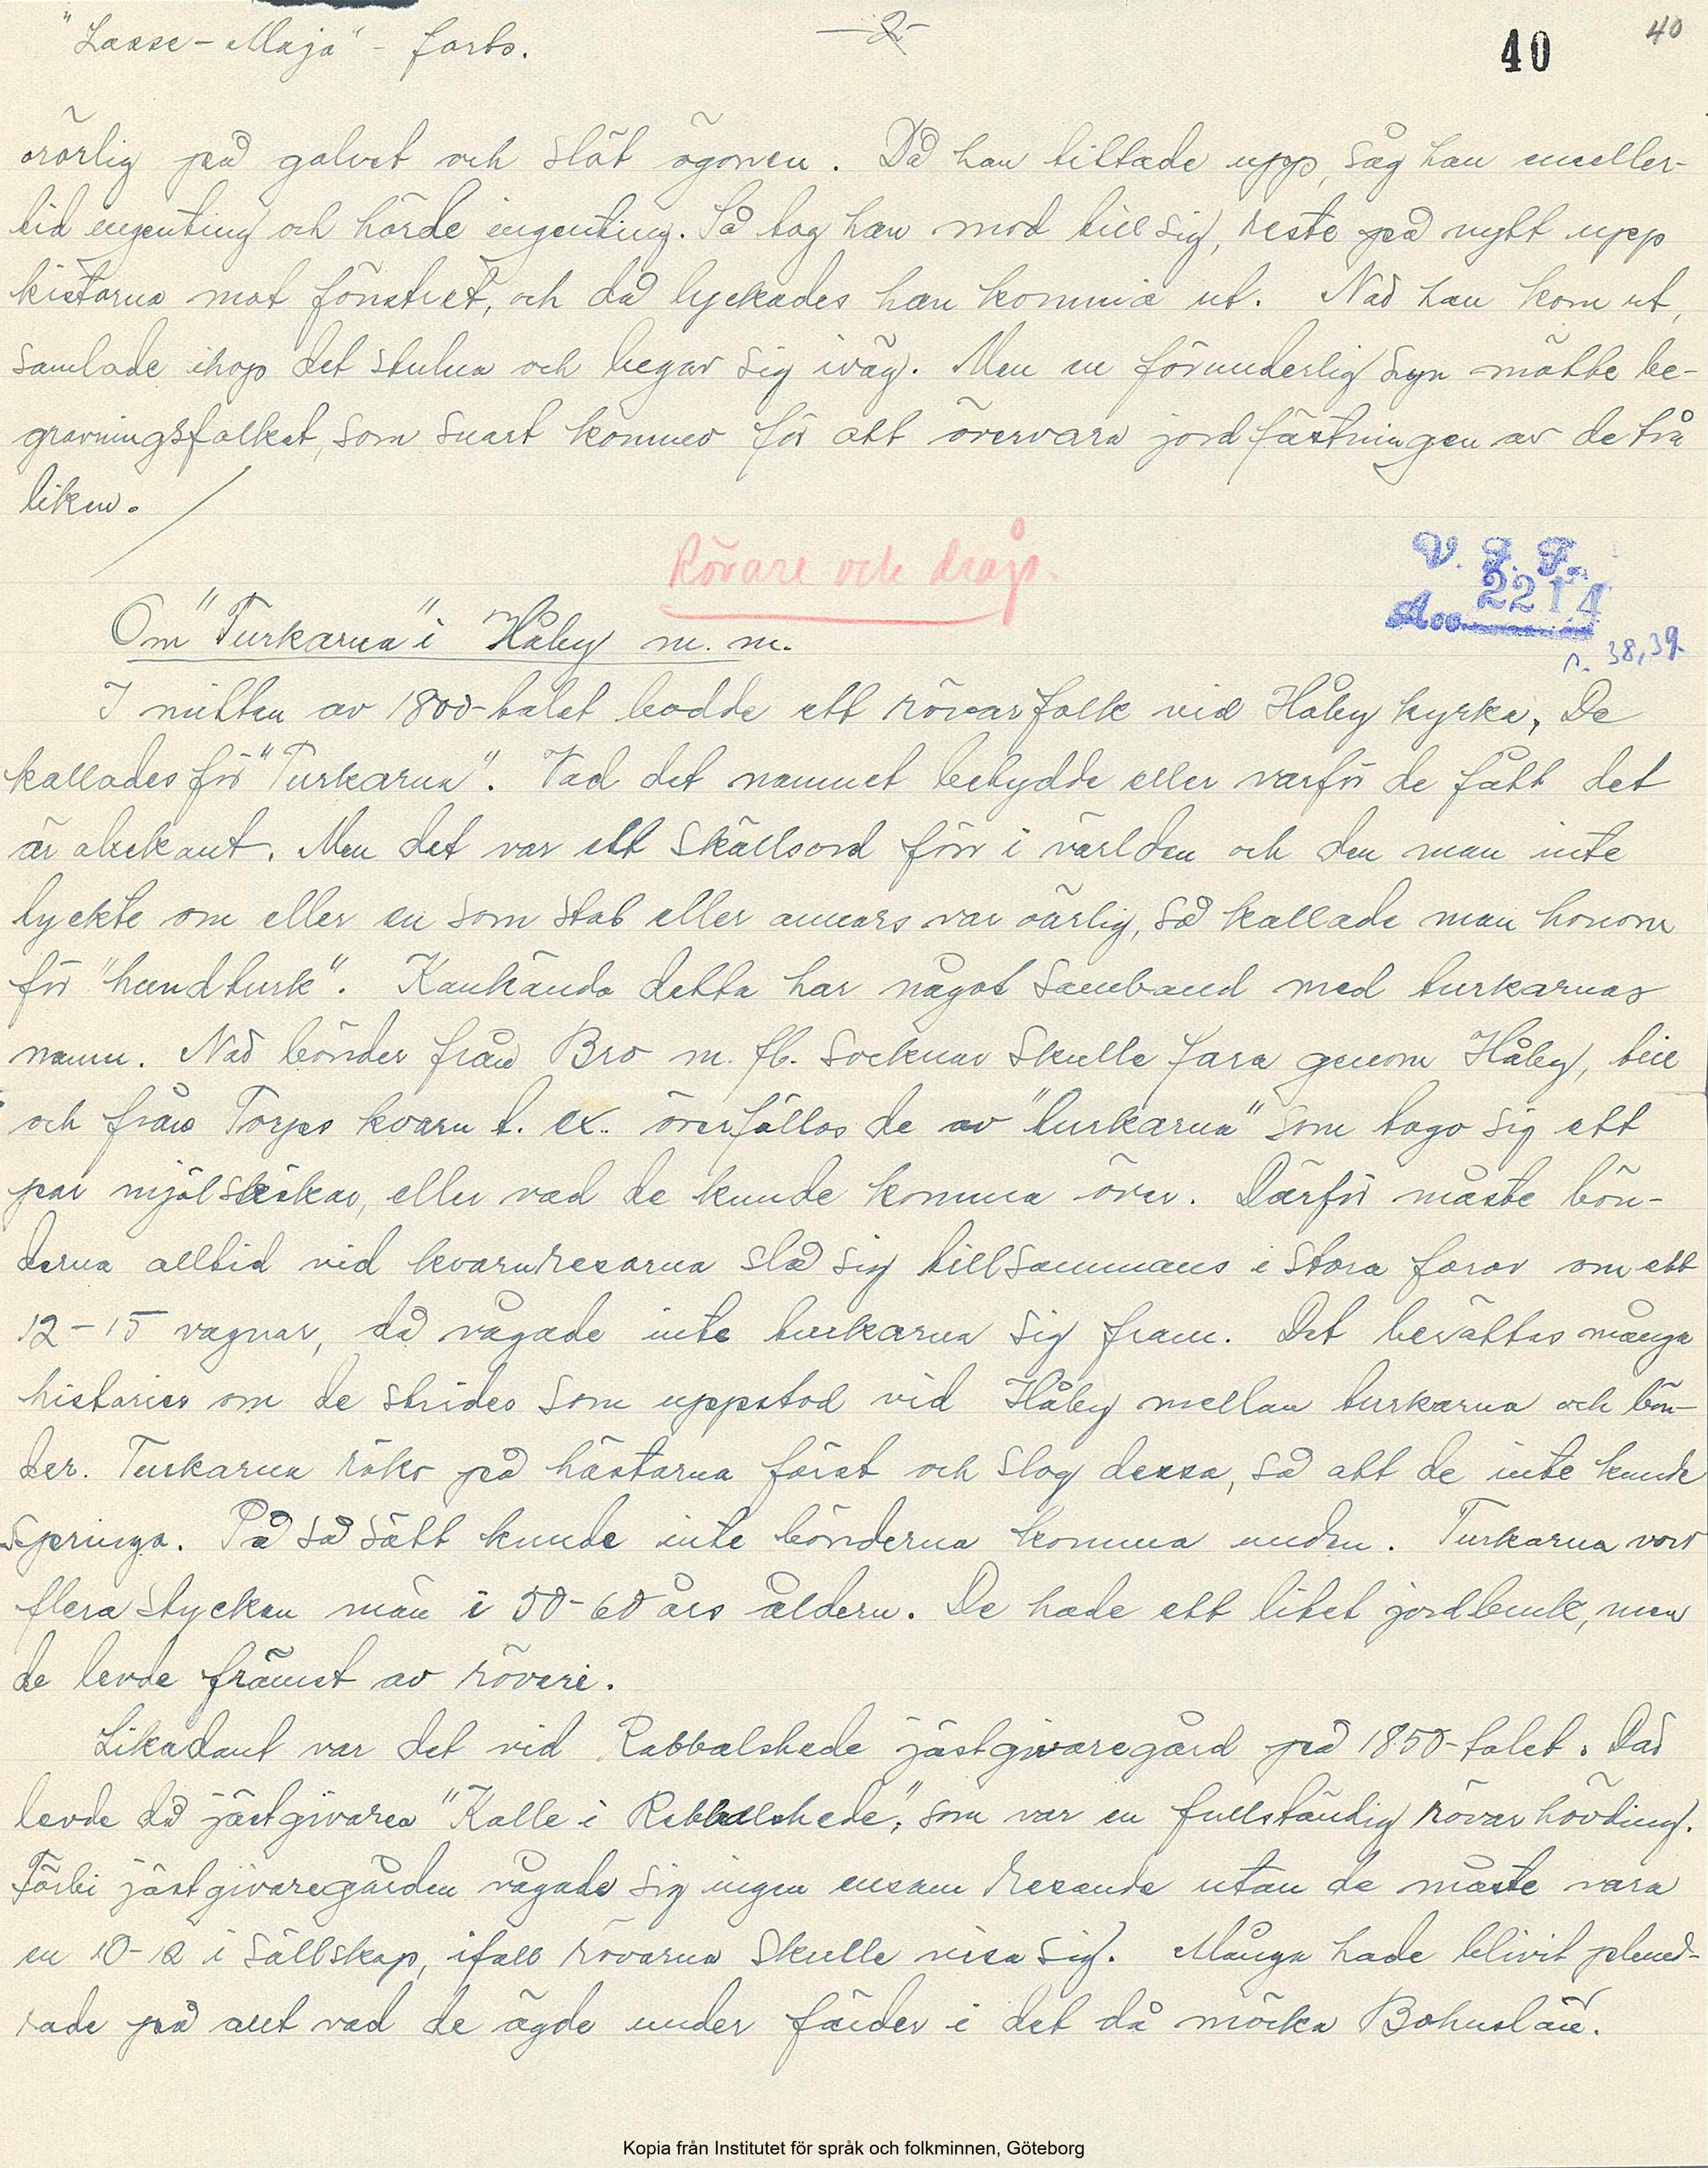 "Lasse-Maja" - forts.
-2-
40
40
orörlig på golvet och slöt ögonen. Då han tittade upp, såg han emeller-
tid ingenting och hörde ingenting. Så tog han mod till sig, reste på nytt upp
kistorna mot fönstret, och då lyckades han komma ut. När han kom ut,
samlade ihop det stulna och begav sig iväg. Men en förunderlig syn mötte be-
gravningsfolket, som snart kommo för att övervara jordfästningen av de två
liken.
Rövare och dråp.
V. F. F.
Acc. 2214
s. 38, 39.
Om "Turkarna" i Håby m. m.
I mitten av 1800-talet bodde ett rövarfolk vid Håby kyrka. De
kallades för "Turkarna". Vad det namnet betydde eller varför de fått det
är obekant. Men det var ett skällsord förr i världen och den man inte
tyckte om eller en som stal eller annars var oärlig, så kallade man honom
för "hundturk". Kankända detta har något samband med turkarnas
namn. När bönder från Bro m. fl. socknar skulle fara genom Håby, till
och från Torps kvarn t. ex. överföllos de av "turkarna" som togo sig ett
par mjölsäckar, eller vad de kunde komma över. Därför måste bön-
derna alltid vid kvarnresorna slå sig tillsammans i stora foror om ett
12-15 vagnar, då vågade inte turkarna sig fram. Det berättas många
historier om de strider som uppstod vid Håby mellan turkarna och bön-
der. Turkarna röko på hästarna först och slog dessa, så att de inte kunde
springa. På så sätt kunde inte bönderna komma undan. Turkarna voro
flera stycken män i 50-60 års åldern. De hade ett litet jordbruk, men
de levde främst av röveri.
Likadant var det vid Rabbalshede jästgivaregård på 1850-talet. Där
levde då jästgivaren "Kalle i Rabbalshede", som var en fullständig rövarhövding.
Förbi jästgivaregården vågade sig ingen ensam resande utan de måste vara
en 10-12 i sällskap, ifall rövarna skulle visa sig. Många hade blivit plund-
rade på allt vad de ägde under färder i det då mörka Bohuslän.
Kopia från Institutet för språk och folkminnen, Göteborg